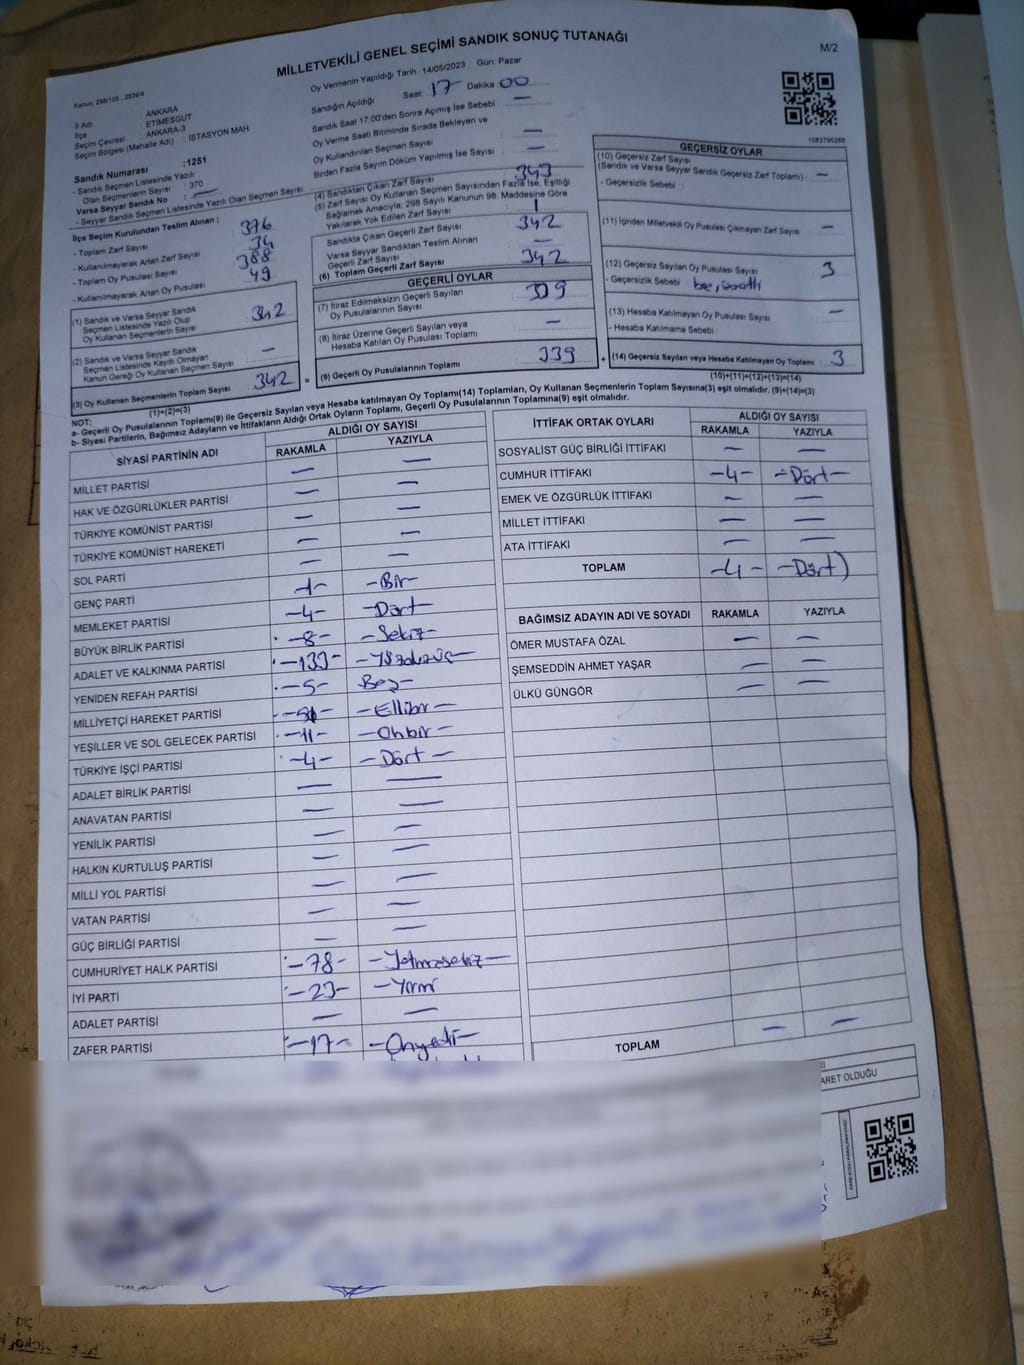 MİLLETVEKİLİ GENEL SEÇİMİ SANDIK SONUÇ TUTANAĞI
M/2
Kanun: 298/105 , 2839/4
Oy Vermenin Yapıldığı Tarih : 14/05/2023 Gün: Pazar
İl Adı : ANKARA
İlçe : ETİMESGUT
Seçim Çevresi : ANKARA-3
Seçim Bölgesi (Mahalle Adı) : İSTASYON MAH
Sandık Numarası :1251
- Sandık Seçmen Listesinde Yazılı
Olan Seçmenlerin Sayısı : 370
Varsa Seyyar Sandık No —
- Seyyar Sandık Seçmen Listesinde Yazılı Olan Seçmen Sayısı
İlçe Seçim Kurulundan Teslim Alınan :
- Toplam Zarf Sayısı 376
- Kullanılmayarak Artan Zarf Sayısı 34
- Toplam Oy Pusulası Sayısı 388
- Kullanılmayarak Artan Oy Pusulası 49
(1) Sandık ve Varsa Seyyar Sandık
Seçmen Listesinde Yazılı Olup
Oy Kullanan Seçmenlerin Sayısı 342
(2) Sandık ve Varsa Seyyar Sandık
Seçmen Listesinde Kayıtlı Olmayan
Kanun Gereği Oy Kullanan Seçmen Sayısı —
(3) Oy Kullanan Seçmenlerin Toplam Sayısı 342
(1)+(2)=(3)
Sandığın Açıldığı Saat 17 Dakika 00
Sandık Saat 17:00'den Sonra Açılmış İse Sebebi —
Oy Verme Saati Bitiminde Sırada Bekleyen ve
Oy Kullandırılan Seçmen Sayısı —
Birden Fazla Sayım Döküm Yapılmış İse Sayısı —
(4) Sandıktan Çıkan Zarf Sayısı 343
(5) Zarf Sayısı Oy Kullanan Seçmen Sayısından Fazla İse, Eşitliği
Sağlamak Amacıyla, 298 Sayılı Kanunun 98. Maddesine Göre
Yakılarak Yok Edilen Zarf Sayısı 1
Sandıkta Çıkan Geçerli Zarf Sayısı 342
Varsa Seyyar Sandıktan Teslim Alınan
Geçerli Zarf Sayısı —
(6) Toplam Geçerli Zarf Sayısı 342
GEÇERLİ OYLAR
(7) İtiraz Edilmeksizin Geçerli Sayılan
Oy Pusulalarının Sayısı 339
(8) İtiraz Üzerine Geçerli Sayılan veya
Hesaba Katılan Oy Pusulası Toplamı —
= (9) Geçerli Oy Pusulalarının Toplamı 339 +
1083795288
GEÇERSİZ OYLAR
(10) Geçersiz Zarf Sayısı
(Sandık ve Varsa Seyyar Sandık Geçersiz Zarf Toplamı) —
- Geçersizlik Sebebi :
(11) İçinden Milletvekili Oy Pusulası Çıkmayan Zarf Sayısı —
(12) Geçersiz Sayılan Oy Pusulası Sayısı 3
- Geçersizlik Sebebi :
(13) Hesaba Katılmayan Oy Pusulası Sayısı —
- Hesaba Katılmama Sebebi :
(14) Geçersiz Sayılan veya Hesaba Katılmayan Oy Toplamı 3
(10)+(11)+(12)+(13)=(14)
NOT:
a- Geçerli Oy Pusulalarının Toplamı(9) ile Geçersiz Sayılan veya Hesaba katılmayan Oy Toplamı(14) Toplamları, Oy Kullanan Seçmenlerin Toplam Sayısına(3) eşit olmalıdır. (9)+(14)=(3)
b- Siyasi Partilerin, Bağımsız Adayların ve İttifakların Aldığı Ortak Oyların Toplamı, Geçerli Oy Pusulalarının Toplamına(9) eşit olmalıdır.
SİYASİ PARTİNİN ADI ALDIĞI OY SAYISI
RAKAMLA YAZIYLA
MİLLET PARTİSİ — —
HAK VE ÖZGÜRLÜKLER PARTİSİ — —
TÜRKİYE KOMÜNİST PARTİSİ — —
TÜRKİYE KOMÜNİST HAREKETİ — —
SOL PARTİ — —
GENÇ PARTİ -1- -Bir-
MEMLEKET PARTİSİ -4- -Dört-
BÜYÜK BİRLİK PARTİSİ -8- -Sekiz-
ADALET VE KALKINMA PARTİSİ -133- -Yüzotuzüç-
YENİDEN REFAH PARTİSİ -5- Beş-
MİLLİYETÇİ HAREKET PARTİSİ -51- -Ellibir-
YEŞİLLER VE SOL GELECEK PARTİSİ -11- -Onbir-
TÜRKİYE İŞÇİ PARTİSİ -4- -Dört-
ADALET BİRLİK PARTİSİ — —
ANAVATAN PARTİSİ — —
YENİLİK PARTİSİ — —
HALKIN KURTULUŞ PARTİSİ — —
MİLLİ YOL PARTİSİ — —
VATAN PARTİSİ — —
GÜÇ BİRLİĞİ PARTİSİ — —
CUMHURİYET HALK PARTİSİ -78- -Yetmişsekiz-
İYİ PARTİ -23- -Yirmi
ADALET PARTİSİ — —
ZAFER PARTİSİ -17- -Onyedi-
İTTİFAK ORTAK OYLARI ALDIĞI OY SAYISI
RAKAMLA YAZIYLA
SOSYALİST GÜÇ BİRLİĞİ İTTİFAKI — —
CUMHUR İTTİFAKI -4- -Dört-
EMEK VE ÖZGÜRLÜK İTTİFAKI — —
MİLLET İTTİFAKI — —
ATA İTTİFAKI — —
TOPLAM -4- -Dört)
BAĞIMSIZ ADAYIN ADI VE SOYADI RAKAMLA YAZIYLA
ÖMER MUSTAFA ÖZAL — —
ŞEMSEDDİN AHMET YAŞAR — —
ÜLKÜ GÜNGÖR — —
TOPLAM — —
ARET OLDUĞU